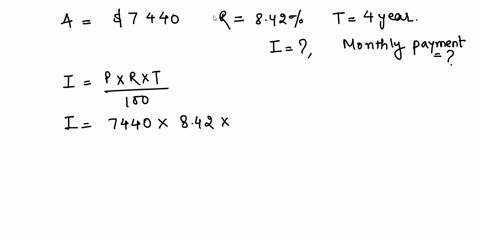 A = $7 440 R = 8.42% T = 4 year.
I = ?, Monthly payment = ?
I = P x R x T / 100
I = 7440 x 8.42 x